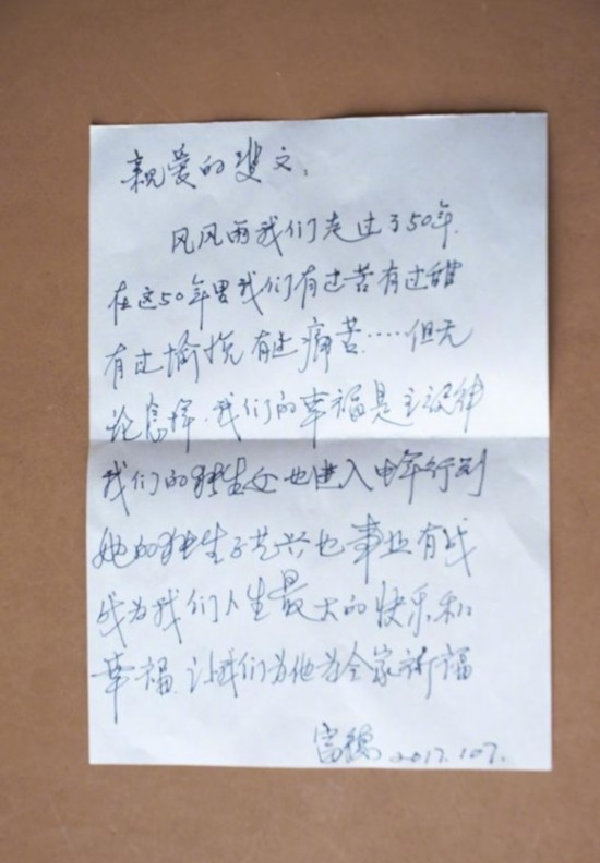 亲爱的斐文：
风风雨我们走过了50年
在这50年里我们有过苦有过甜
有过愉悦有过痛苦……但无
论怎样，我们的幸福是主旋律
我们的独生女也进入中年行列
她的独生子艺兴也事业有成
成为我们人生最大的快乐和
幸福，让我们为他为全家祈福
富德 2017.10.7.